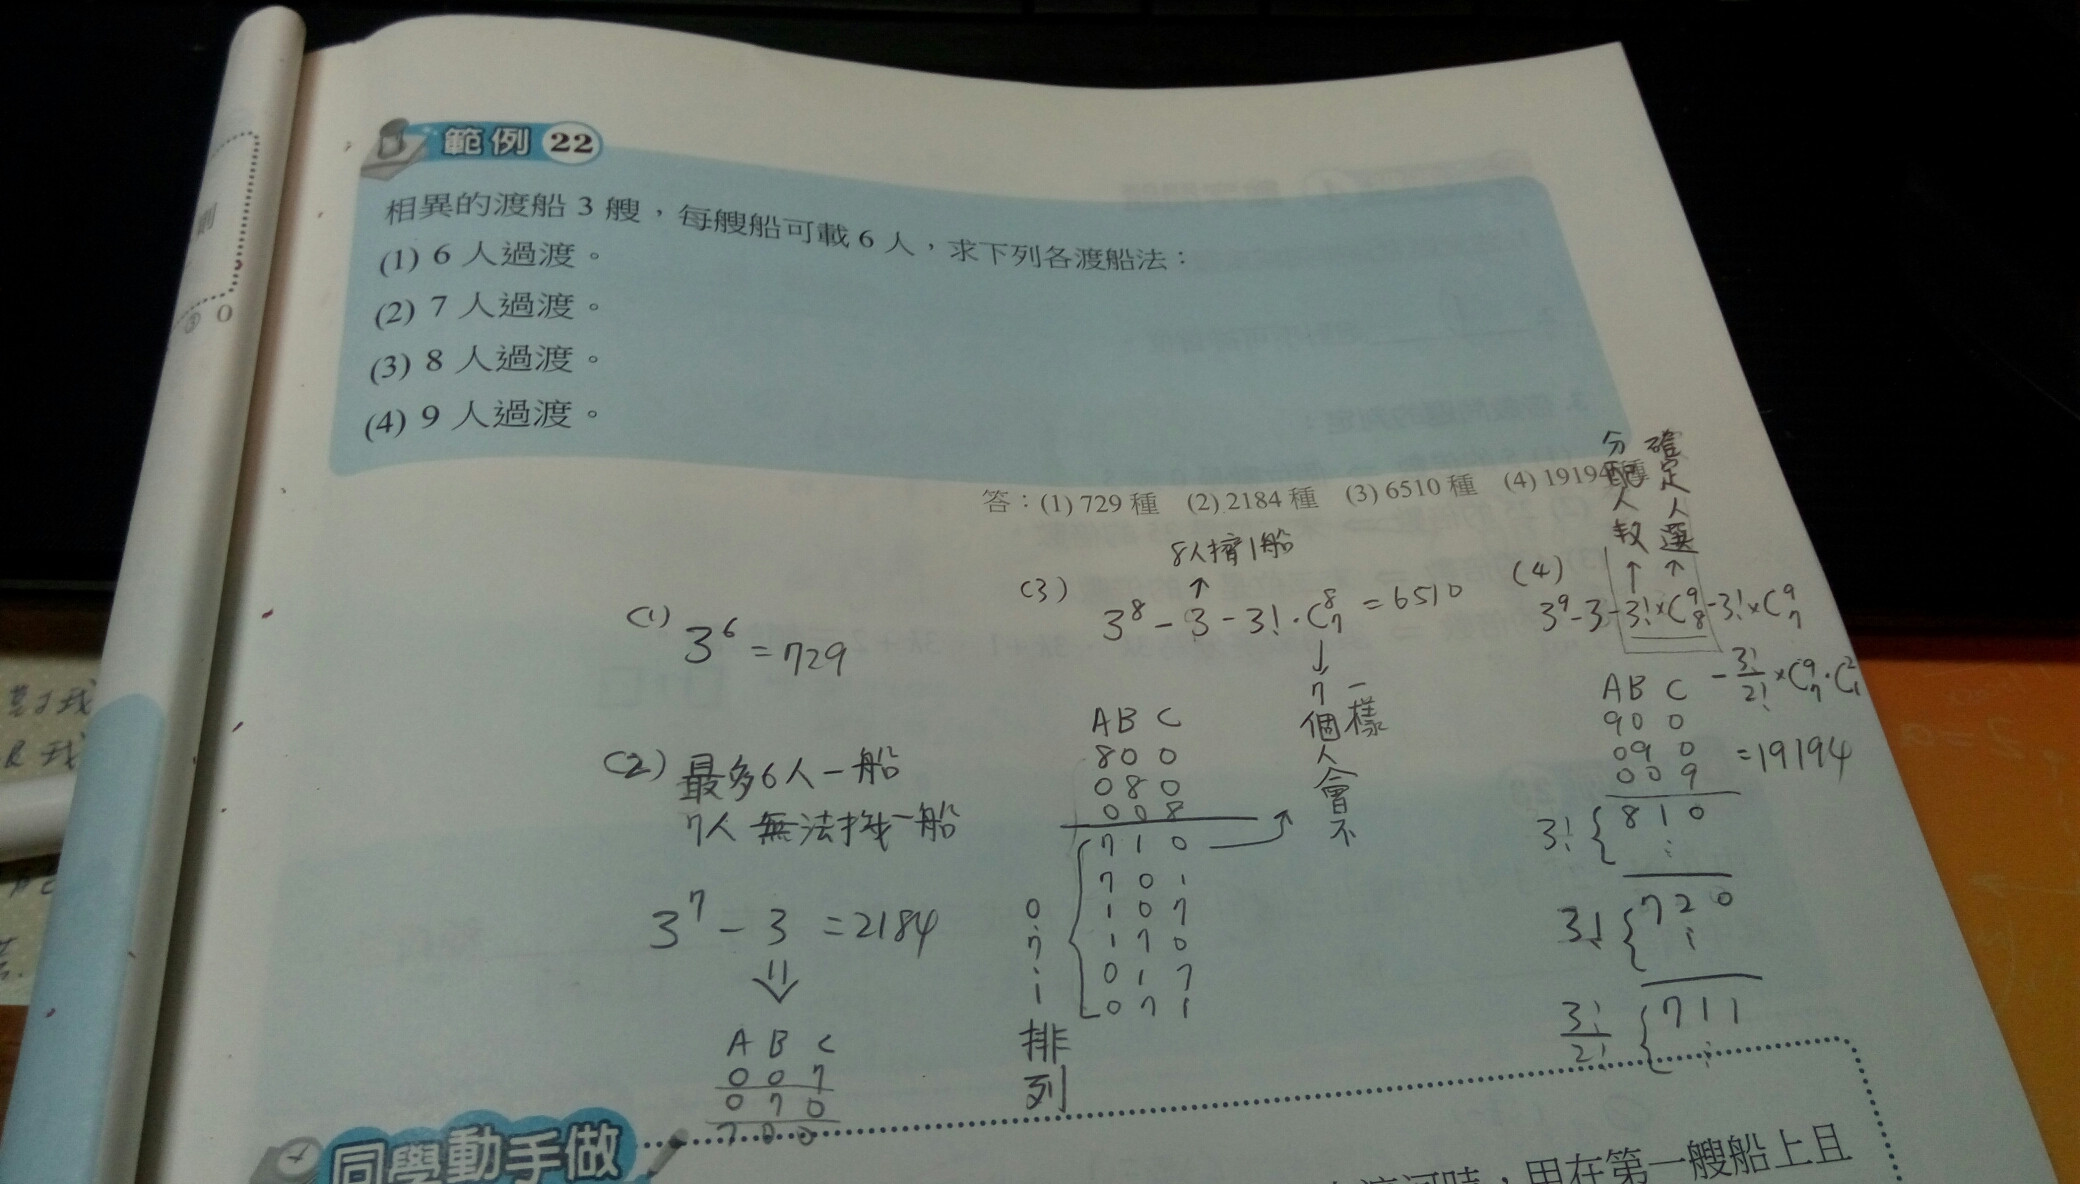 範例 22
相異的渡船 3 艘，每艘船可載 6 人，求下列各渡船法：
(1) 6 人過渡。
(2) 7 人過渡。
(3) 8 人過渡。
(4) 9 人過渡。
答：(1) 729 種 (2) 2184 種 (3) 6510 種 (4) 19194 種
(1)
3⁶ = 729
(2) 最多6人一船
7人無法擠一船
3⁷ - 3 = 2184
⇓
A B C
0 0 7
0 7 0
7 0 0
(3)
8人擠1船
↑
3⁸ - 3 - 3! · C⁸₇ = 6510
↓
7個人會不
一樣
A B C
8 0 0
0 8 0
0 0 8
7 1 0
7 0 1
1 0 7
1 7 0
0 1 7
0 7 1
0.7.1
排列
(4)
分配人數
確定人選
↑ ↑
3⁹ - 3 - 3! × C⁹₈ - 3! × C⁹₇
- 3!/2! × C⁹₇ · C²₁
= 19194
A B C
9 0 0
0 9 0
0 0 9
3! { 8 1 0
⋮
3! { 7 2 0
⋮
3!/2! { 7 1 1
⋮
同學動手做
甲在第一艘船上且
③ 0